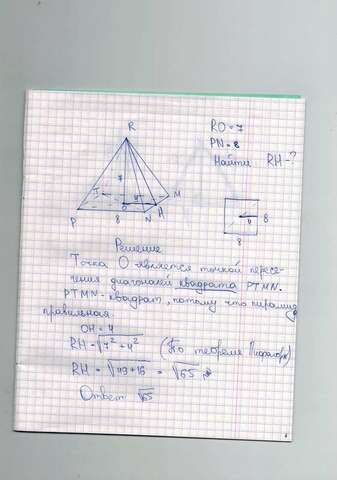 R
RO = 7
PN = 8
Найти: RH - ?
7
T
M
4
O
H
P
8
N
4
8
8
Решение
Точка O является точкой пересе-
чения диагоналей квадрата PTMN.
PTMN - квадрат, потому что пирамида
правильная
OH = 4
RH = √7² + 4² (По теореме Пифагора)
RH = √49+16 = √65
Ответ √65